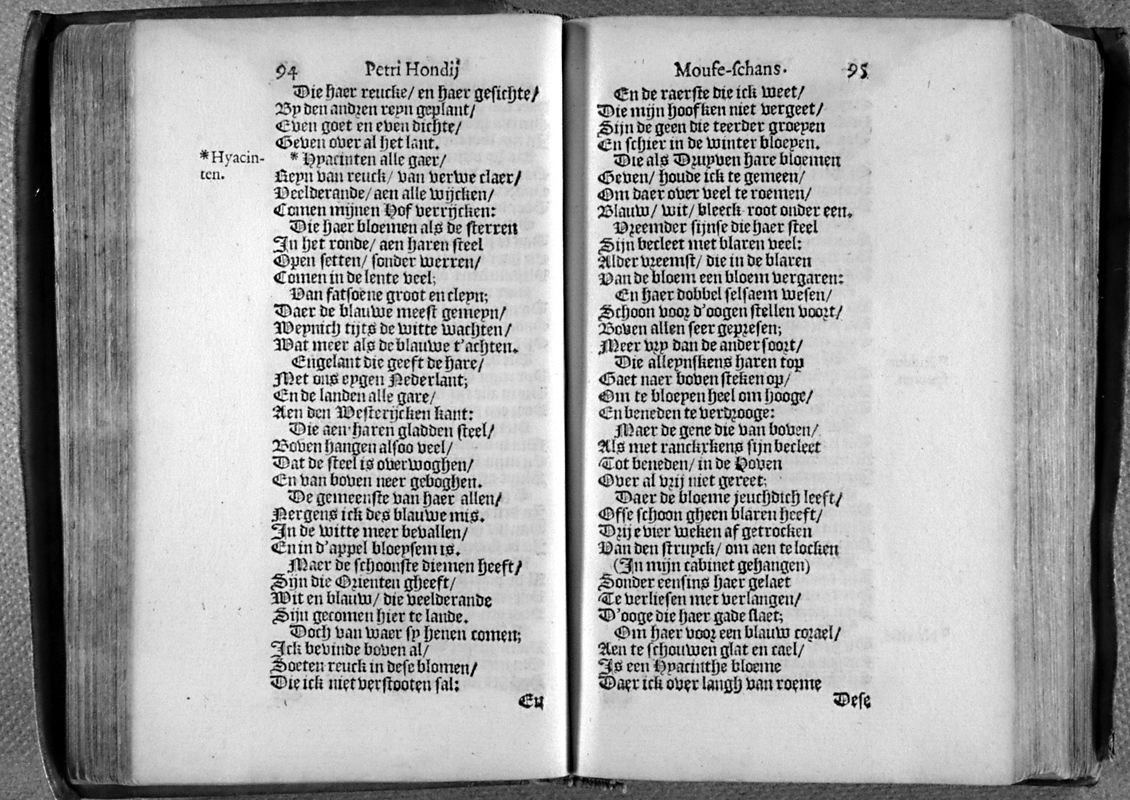 94 Petri Hondij
Die haer reucke/ en haer gesichte/
By den andren reyn geplant/
Even goet en even dichte/
Geven over al het lant.
*Hyacin-
ten.
* Hyacinten alle gaer/
Reyn van reuck/ van verwe claer/
Veelderande/ aen alle wijcken/
Comen mijnen Hof verrijcken:
Die haer bloemen als de sterren
In het ronde/ aen haren steel
Open setten/ sonder werren/
Comen in de lente veel;
Van fatsoene groot en cleyn;
Daer de blauwe meest gemeyn/
Weynich tijts de witte wachten/
Wat meer als de blauwe t'achten.
Engelant die geeft de hare/
Met ons eygen Nederlant;
En de landen alle gare/
Aen den Westerijcken kant:
Die aen haren gladden steel/
Boven hangen alsoo veel/
Dat de steel is overwoghen/
En van boven neer geboghen.
De gemeenste van haer allen/
Nergens ick des blauwe mis.
In de witte meer bevallen/
En in d'appel bloeysem is.
Maer de schoonste diemen heeft/
Sijn die Orienten gheeft/
Wit en blauw/ die veelderande
Sijn gecomen hier te lande.
Doch van waer sy henen comen;
Ick bevinde boven al/
Soeten reuck in dese blomen/
Die ick niet verstooten sal:
En
Mouse-schans. 95
En de raerste die ick weet/
Die mijn hoofken niet vergeet/
Sijn de geen die teerder groeyen
En schier in de winter bloeyen.
Die als Druyven hare bloemen
Geven/ houde ick te gemeen/
Om daer over veel te roemen/
Blauw/ wit/ bleeck root onder een.
Vreemder sijnse die haer steel
Sijn becleet met blaren veel:
Alder vreemst/ die in de blaren
Van de bloem een bloem vergaren:
En haer dobbel selsaem wesen/
Schoon voor d'oogen stellen voort/
Boven allen seer gepresen;
Meer vry dan de ander soort/
Die alleynskens haren top
Gaet naer boven steken op/
Om te bloeyen heel om hooge/
En beneden te verdrooge:
Maer de gene die van boven/
Als met ranckxkens sijn becleet
Tot beneden/ in de Hoven
Over al vrij niet gereet;
Daer de bloeme jeuchdich leeft/
Ofse schoon gheen blaren heeft/
Drije vier weken af getrocken
Van den struyck/ om aen te locken
(In mijn cabinet gehangen)
Sonder eensins haer gelaet
Te verliesen met verlangen/
D'ooge die haer gade slaet;
Om haer voor een blauw corael/
Aen te schouwen glat en cael/
Is een Hyacinthe bloeme
Daer ick over langh van roeme
Dese